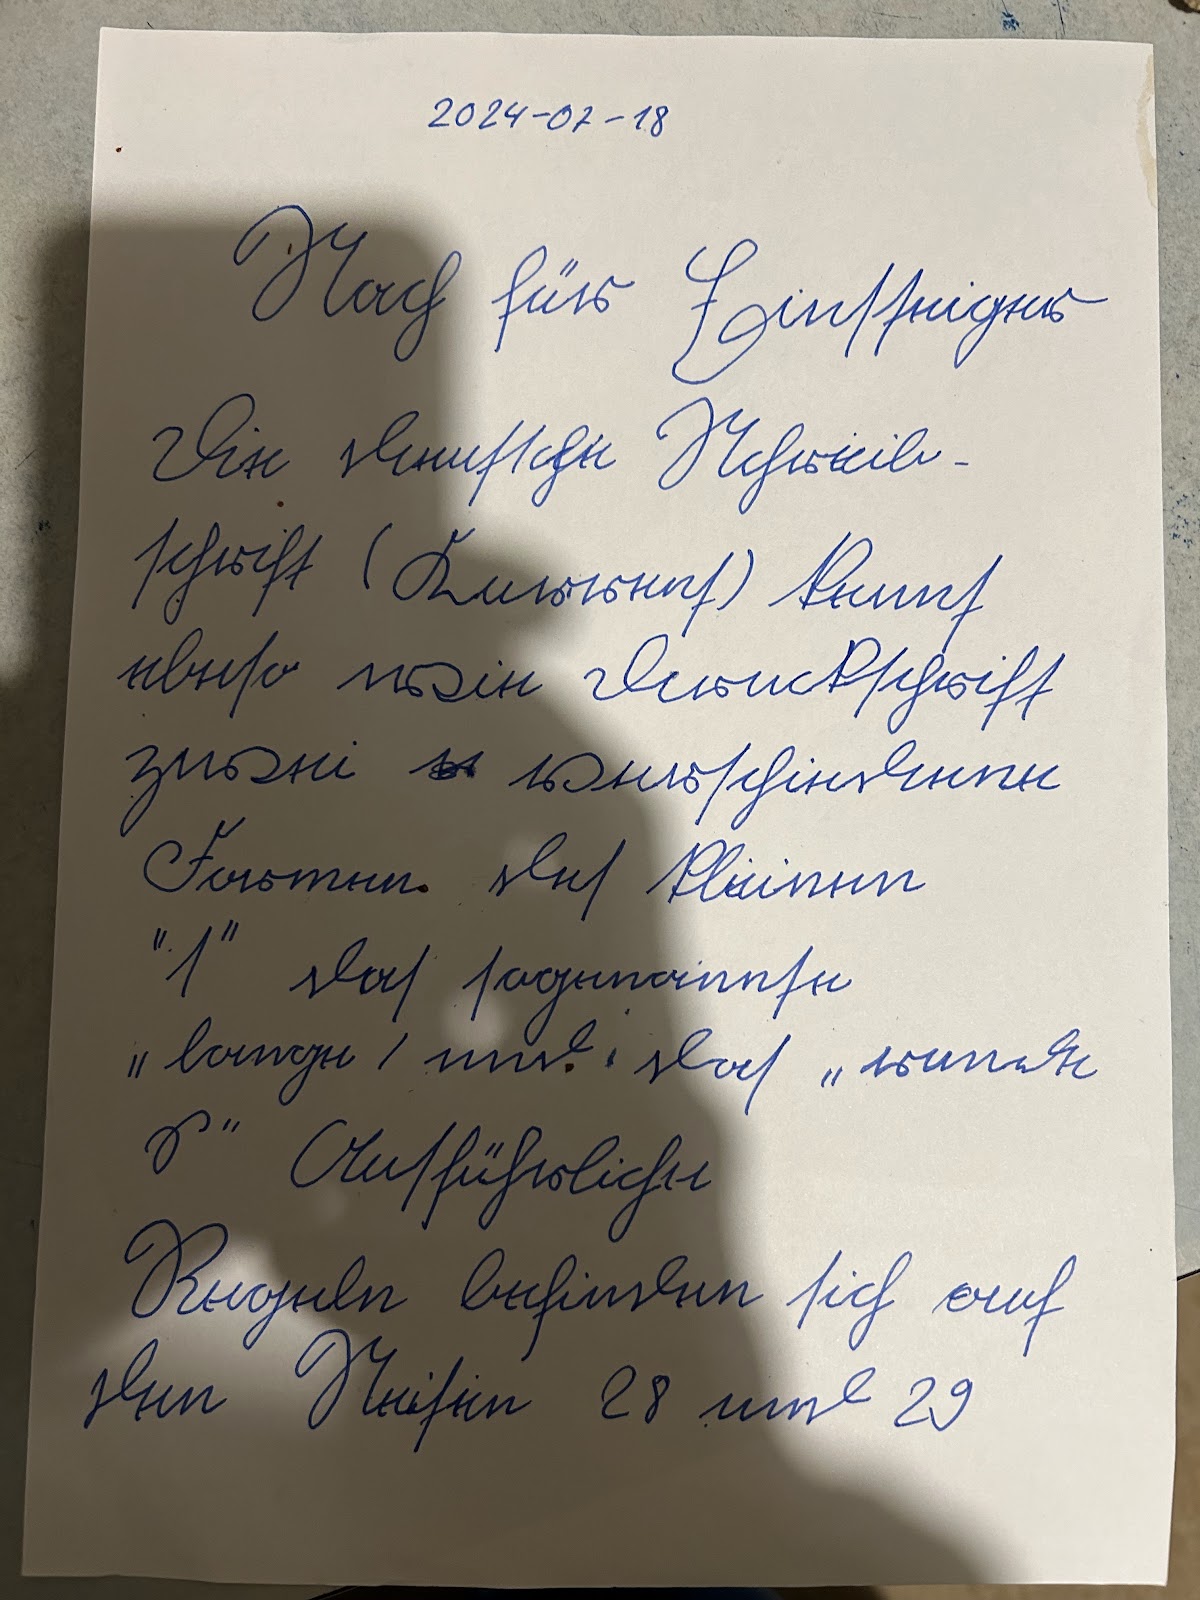 2024-07-18
Sach für Einsteiger
Die deutsche Schreib-
schrift (Kurrent) kennt
ebenso wie Druckschrift
zwei verschiedenen
Formen des kleinen
"ſ" das sogenannte
„lange ſ und das „runde
s" Ausführliche
Regeln befinden sich auf
den Seiten 28 und 29